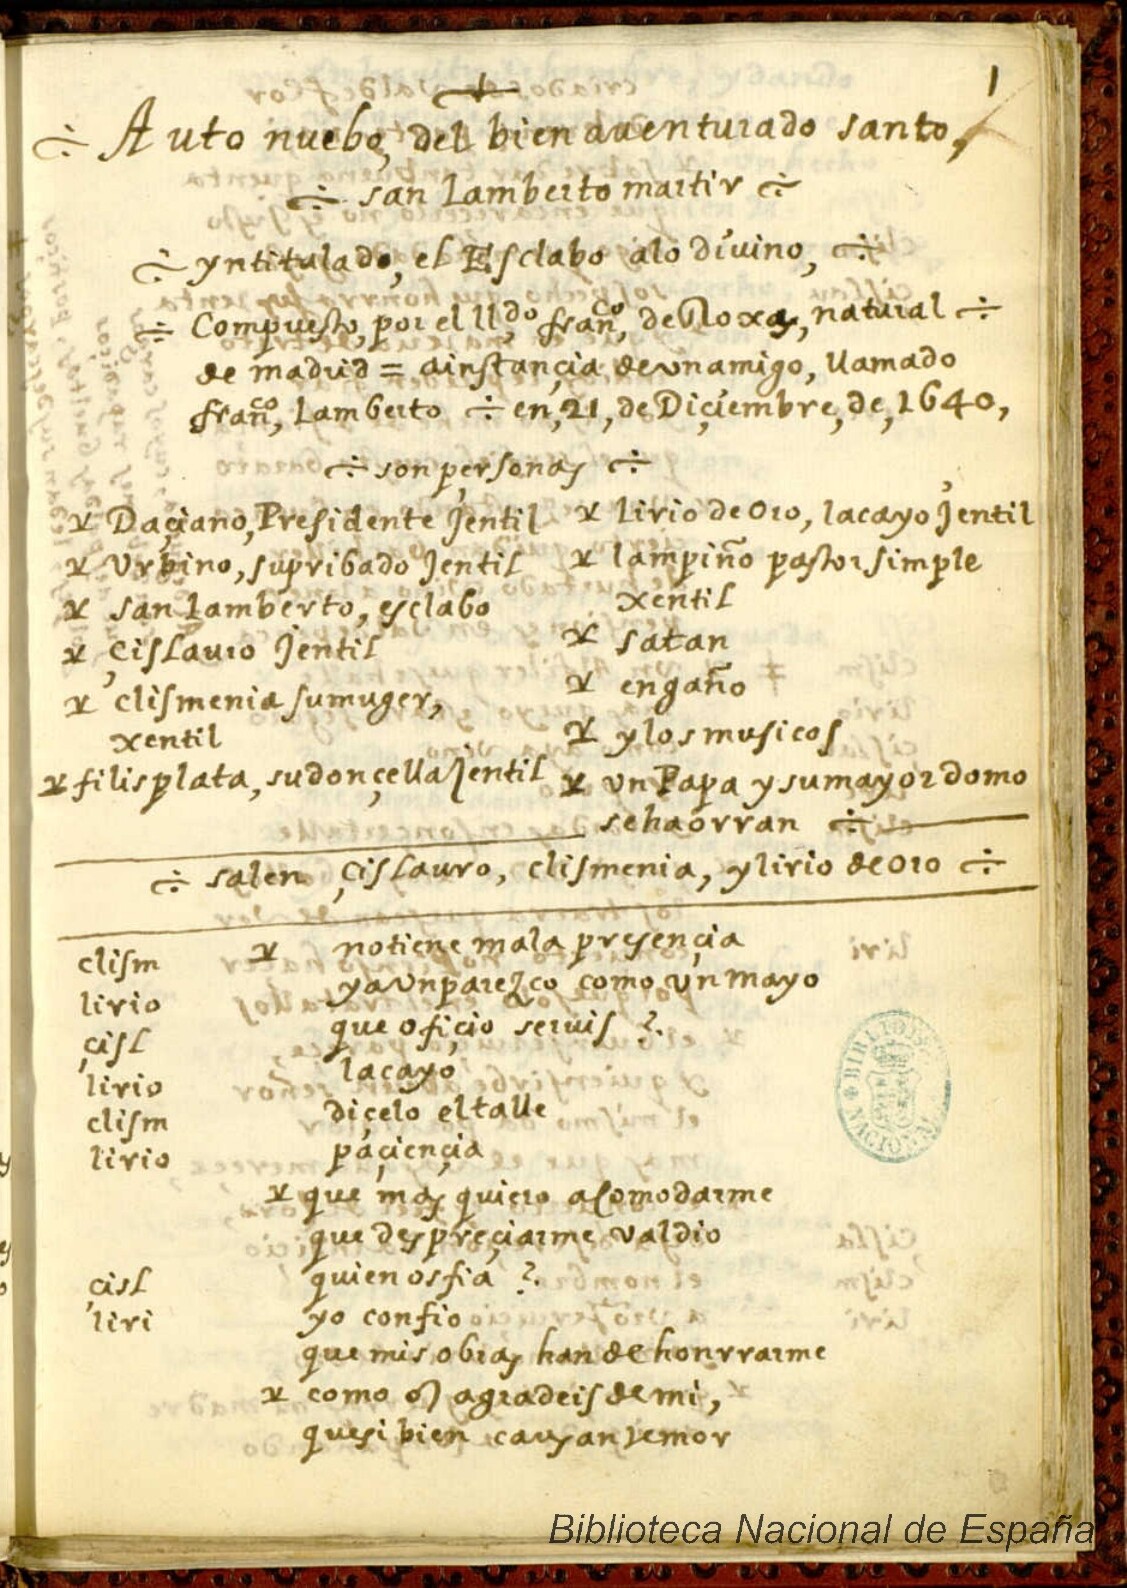 1
Auto nuebo, del bienaventurado santo,
san Lamberto martir
yntitulado, el Esclabo alo divino,
Compuesto, por el ll.do fran.co, de Roxas, natural
de madrid = ainstançia de un amigo, llamado
fran.co, Lamberto en, 21, de Diçiembre, de, 1640,
son personas
Daçiano, Presidente Jentil
Urbino, su pribado Jentil
san Lamberto, esclabo
Çislauro Jentil
clismenia su muger,
xentil
filis plata, su donçella Jentil
Lirio de Oro, lacayo Jentil
lampiño pastor simple
xentil
satan
engaño
y los musicos
un Papa y su mayordomo
se haorran
salen Çislauro, clismenia, y lirio de oro
clism no tiene mala presençia
lirio ya un parezco como un mayo
çisl que ofiçio servis ?.
lirio lacayo
clism diçelo el talle
lirio paçiençia
que mas quiero acomodarme
que despreçiarme valdio
çisl quien os fia ?.
liri yo confio
que mis obras han de honrrarme
como os agradeis de mi,
que si bien causan temor
BIBLIOTECA NACIONAL
Biblioteca Nacional de España